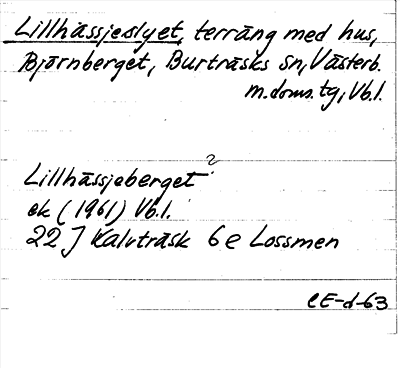 Lillhässjeslyet, terräng med hus,
Bjärnberget, Burträsks sn, Västerb.
m. doms. tg, Vb. l.
Lillhässjeberget ?
ek (1961) Vb. l.
22 J Kalvträsk 6 e Lossmen
CE-d-63